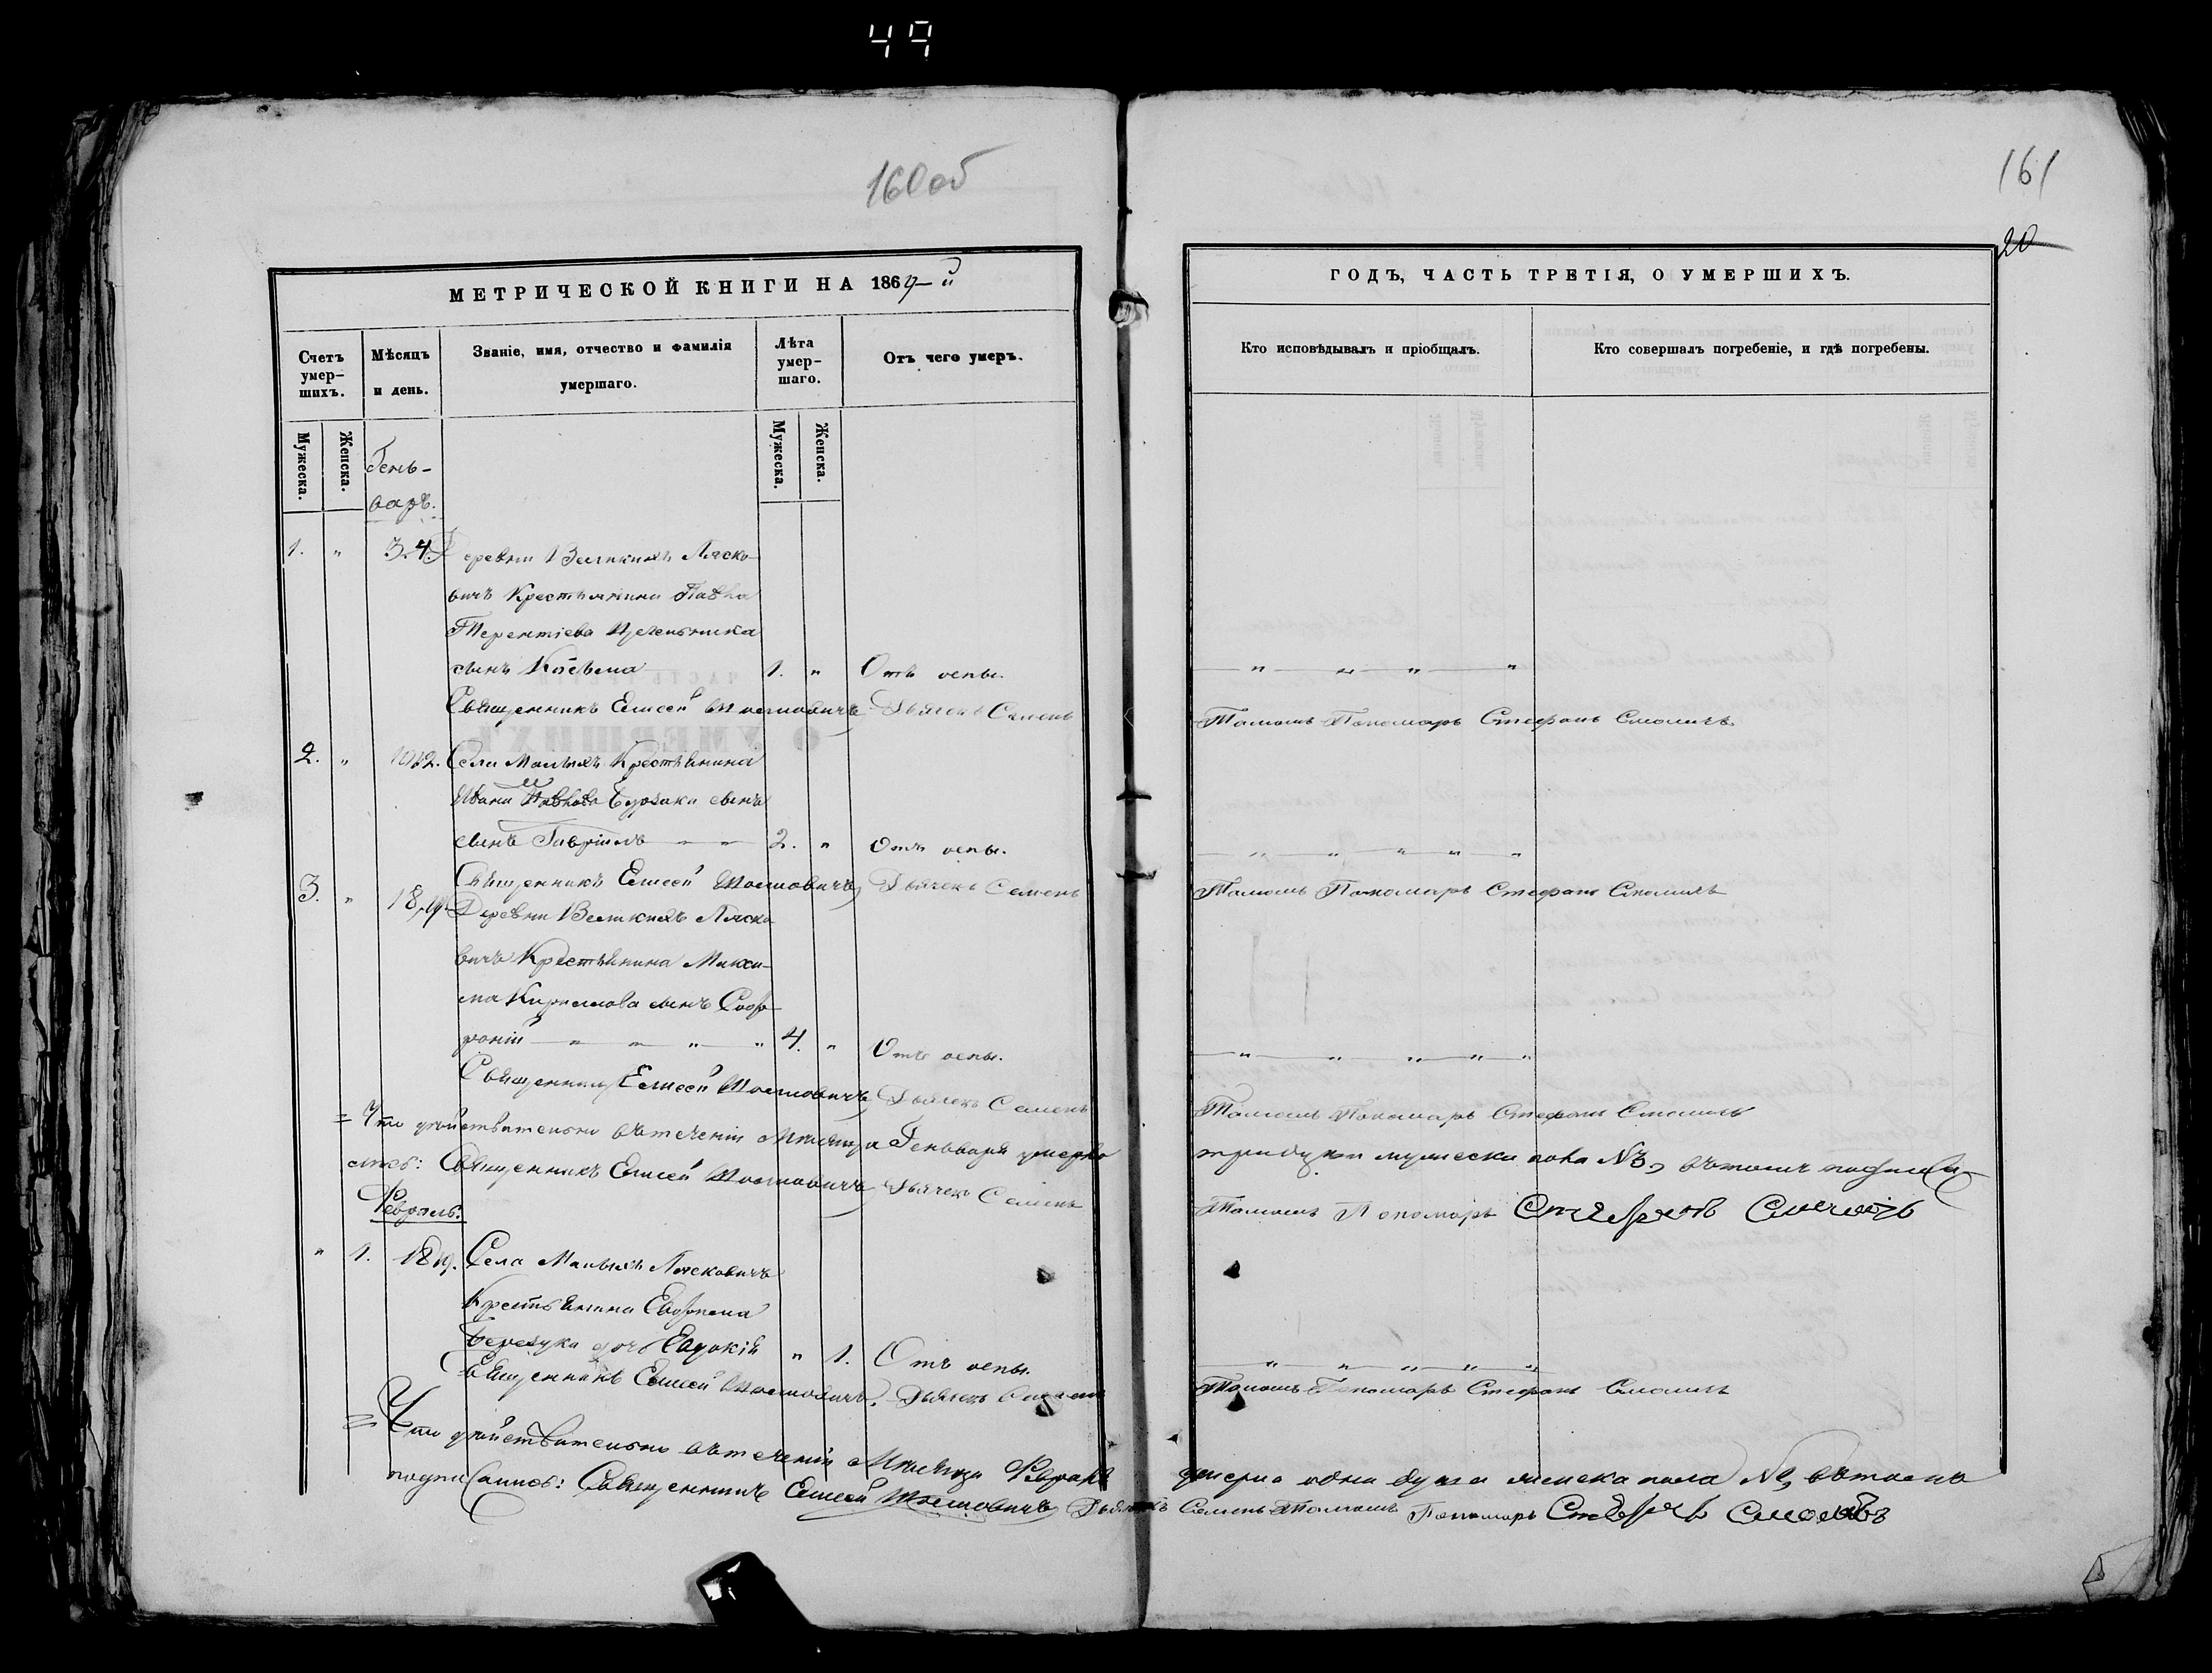 49
160об
161
20
МЕТРИЧЕСКОЙ КНИГИ НА 1869-й
ГОДЪ, ЧАСТЬ ТРЕТІЯ, О УМЕРШИХЪ.
Счетъ умер-
шихъ.
Мѣсяцъ
и день.
Званіе, имя, отчество и фамилія
умершаго.
Лѣта
умер-
шаго.
Отъ чего умеръ.
Кто исповѣдывалъ и пріобщалъ.
Кто совершалъ погребеніе, и гдѣ погребены.
Мужеска.
Женска.
Мужеска.
Женска.
Гень-
варь.
1. " 3. 4. Деревни Великихъ Ляско-
вичъ Крестьянина Павла
Терентіева
сынъ 1. " Отъ оспы.
Священникъ Елисей Дьячекъ Семенъ
Томашъ Пономарь Стефанъ Смоличъ
2. " 10 12. Села Малыхъ Крестьянина
Ивана сынъ
сынъ Гавріилъ 2. " Отъ оспы.
Священникъ Елисей Дьячекъ Семенъ
Томашъ Пономарь Стефанъ Смоличъ
3. " 18, 19. Деревни Великихъ Ляско-
вичъ Крестьянина Макси-
ма Кириллова сынъ Соф-
роній 4. " Отъ оспы.
Священникъ Елисей Дьячекъ Семенъ
Томашъ Пономарь Стефанъ Смоличъ
Что дѣйствительно въ теченіи Мѣсяца Генваря умерло
три души мужеска пола №3, въ томъ подписа-
лись: Священникъ Елисей Дьячекъ Семенъ
Томашъ Пономарь Стефанъ Смоличъ
Февраль.
" 1. 18 19. Села Малыхъ Лясковичъ
Крестьянина
Березука дочь Евдокія " 1. Отъ оспы.
Священникъ Елисей Дьячекъ Семенъ
Томашъ Пономарь Стефанъ Смоличъ
Что дѣйствительно въ теченіи Мѣсяца Февраля умерла одна душа женска пола №1, въ томъ
подписались: Священникъ Елисей Дьячекъ Семенъ Томашъ Пономарь Стефанъ Смоличъ